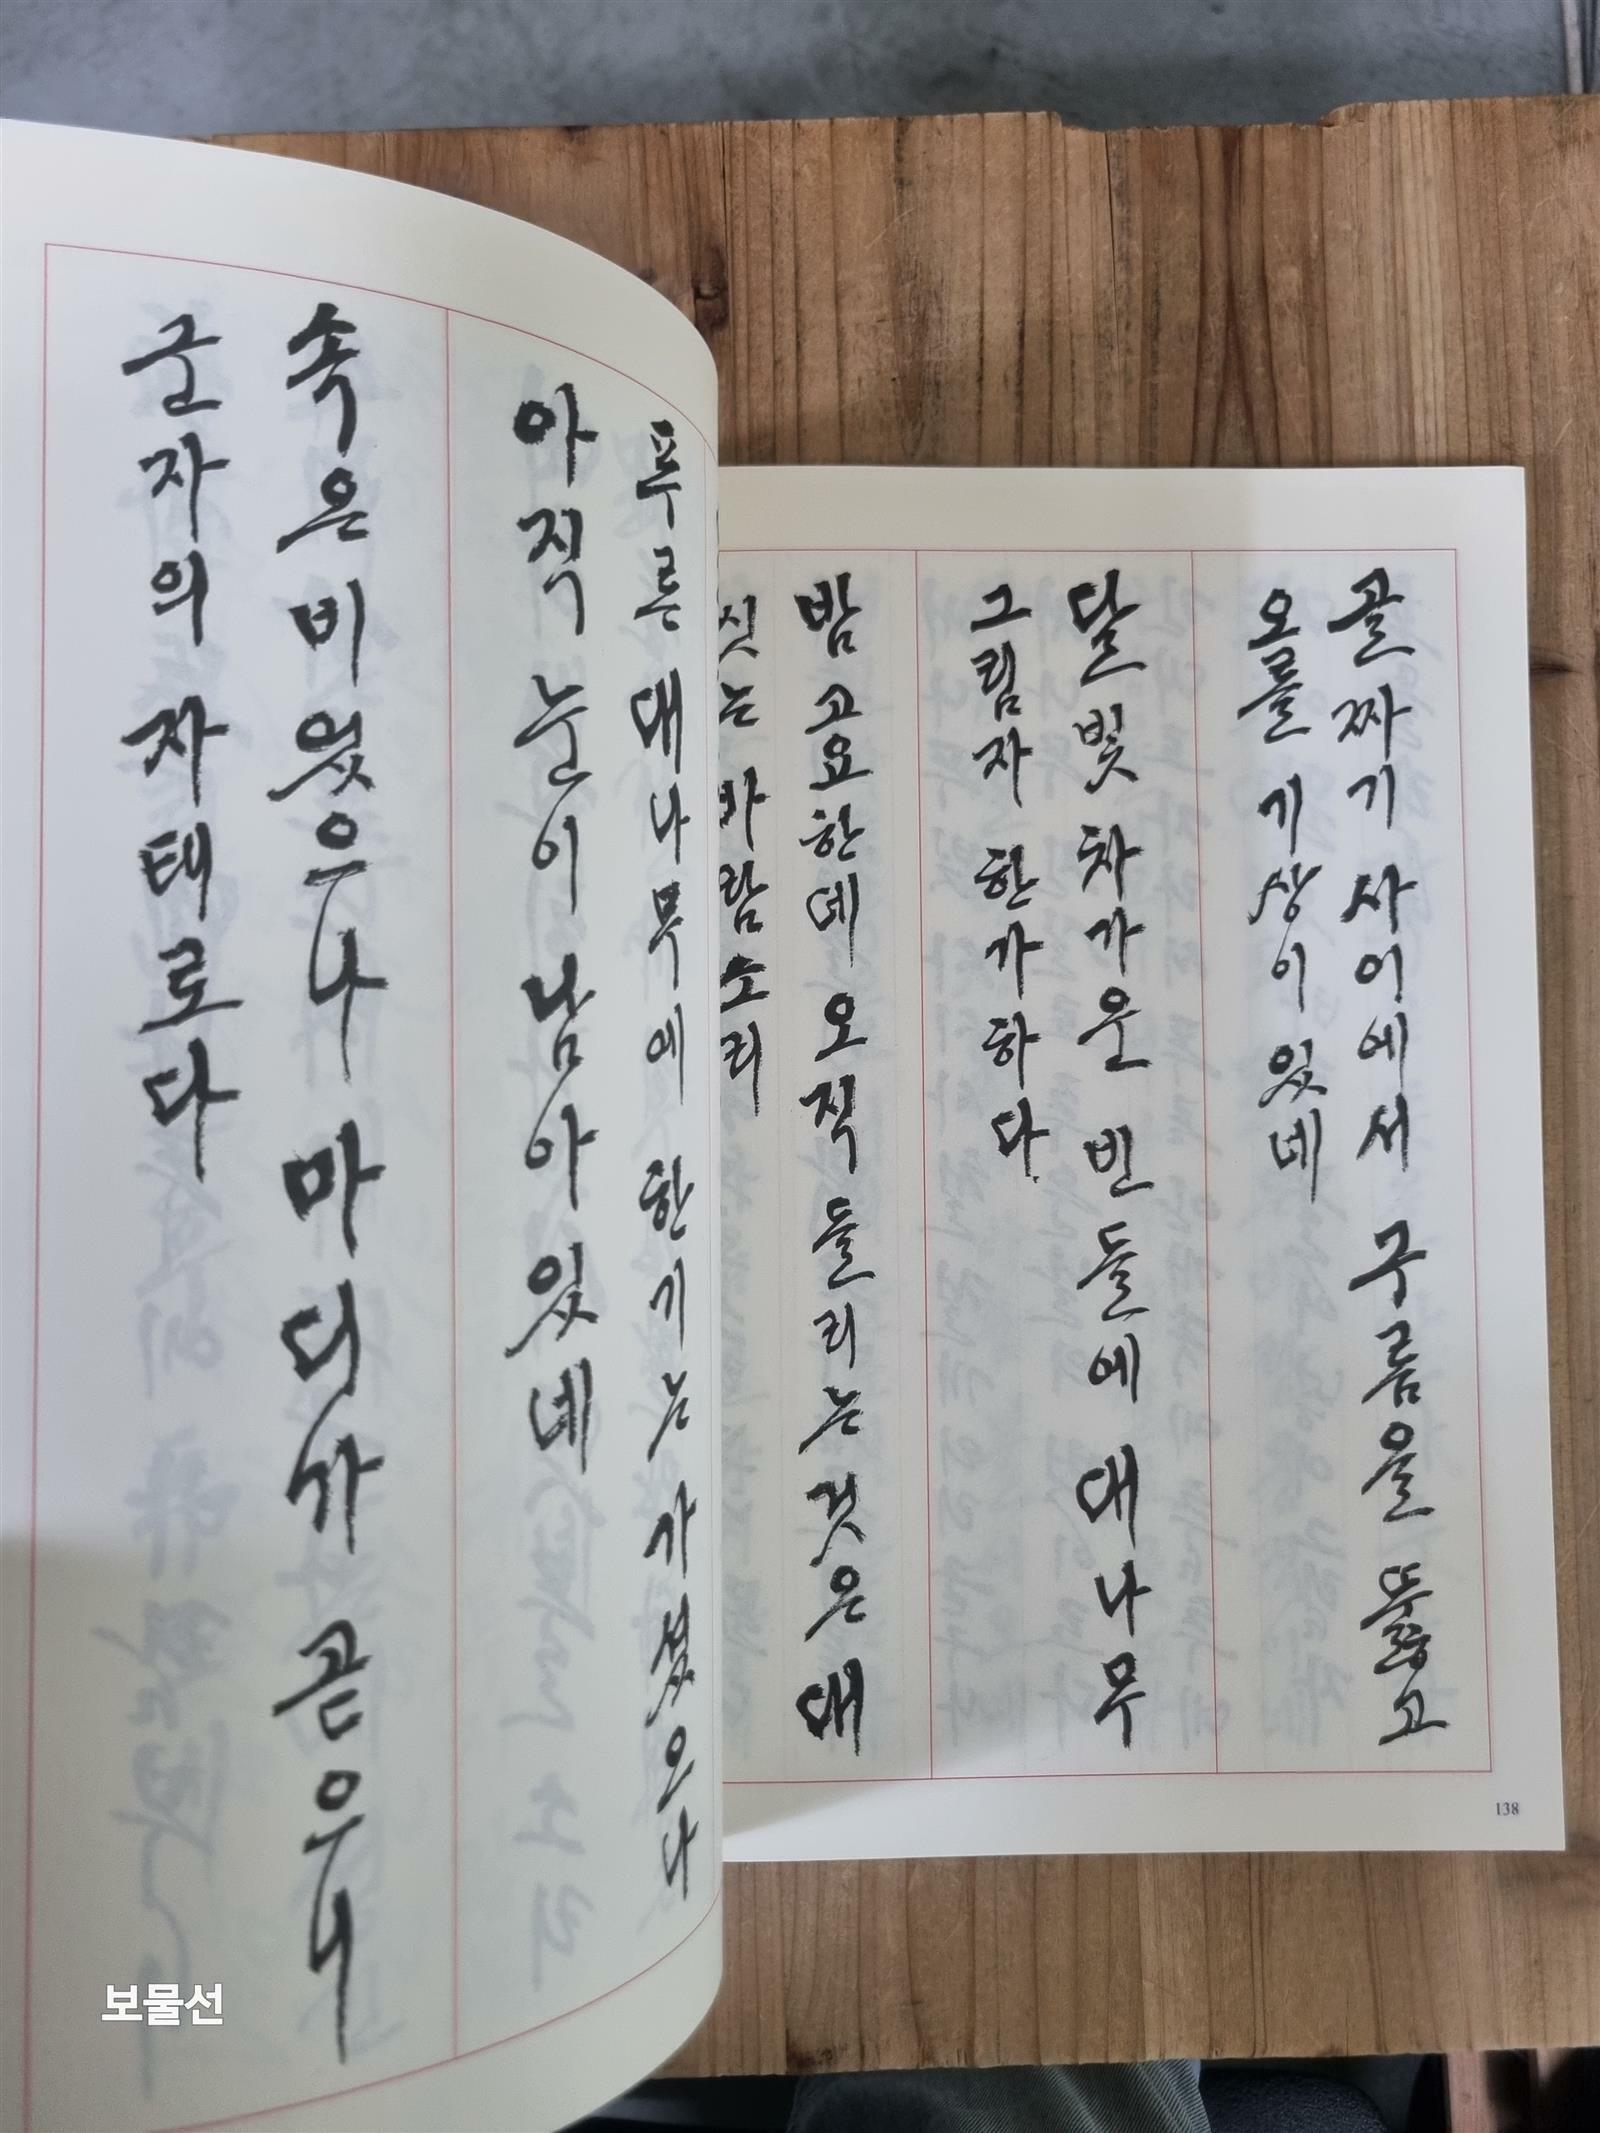 골짜기 사이에서 구름을 뚫고
오를 기상이 있네
달빛 차가운 빈 들에 대나무
그림자 한가하다
밤 고요한데 오직 들리는 것은 대
씻는 바람소리
138
푸른 대나무에 한기는 가셨으나
아직 눈이 남아 있네
속은 비었으나 마디가 곧으니
군자의 자태로다
보물선